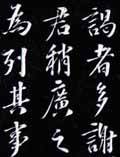 謁者多謝
君稍廣之
為列其事